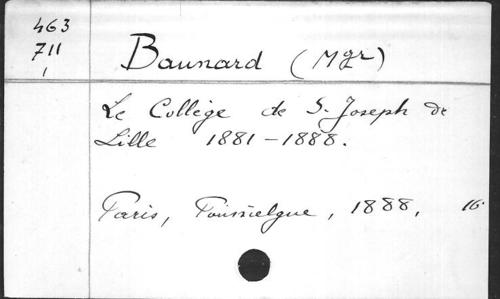 463
711
1
Baunard (Mgr)
Le Collège de S. Joseph de
Lille 1881-1888.
Paris, Poussielgue, 1888, 16